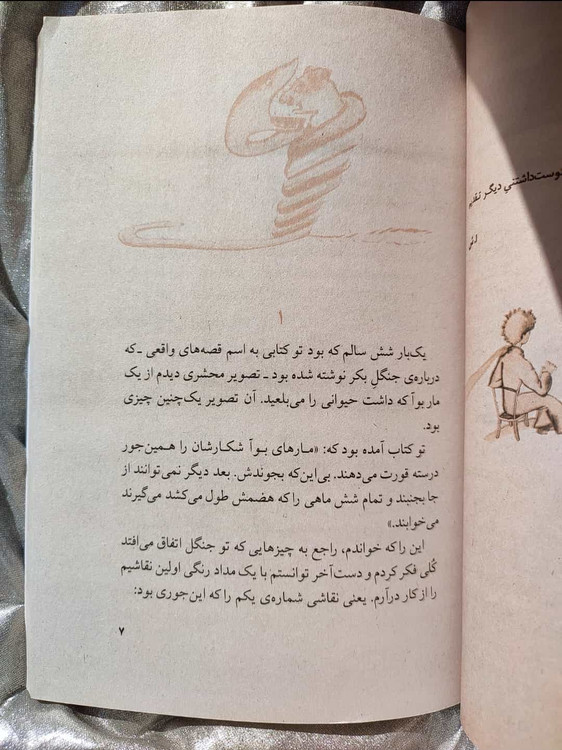 ۱
یک‌بار شش سالم که بود تو کتابی به اسم قصه‌های واقعی ـ که
درباره‌ی جنگلِ بکر نوشته شده بود ـ تصویر محشری دیدم از یک
مار بوآ که داشت حیوانی را می‌بلعید. آن تصویر یک‌چنین چیزی
بود.
تو کتاب آمده بود که: «مارهای بوآ شکارشان را همین‌جور
درسته قورت می‌دهند. بی‌این‌که بجوندش. بعد دیگر نمی‌توانند از
جا بجنبند و تمام شش ماهی را که هضمش طول می‌کشد می‌گیرند
می‌خوابند.»
این را که خواندم، راجع به چیزهایی که تو جنگل اتفاق می‌افتد
کُلی فکر کردم و دست‌آخر توانستم با یک مداد رنگی اولین نقاشیم
را از کار درآرم. یعنی نقاشی شماره‌ی یکم را که این‌جوری بود:
۷
دیگر